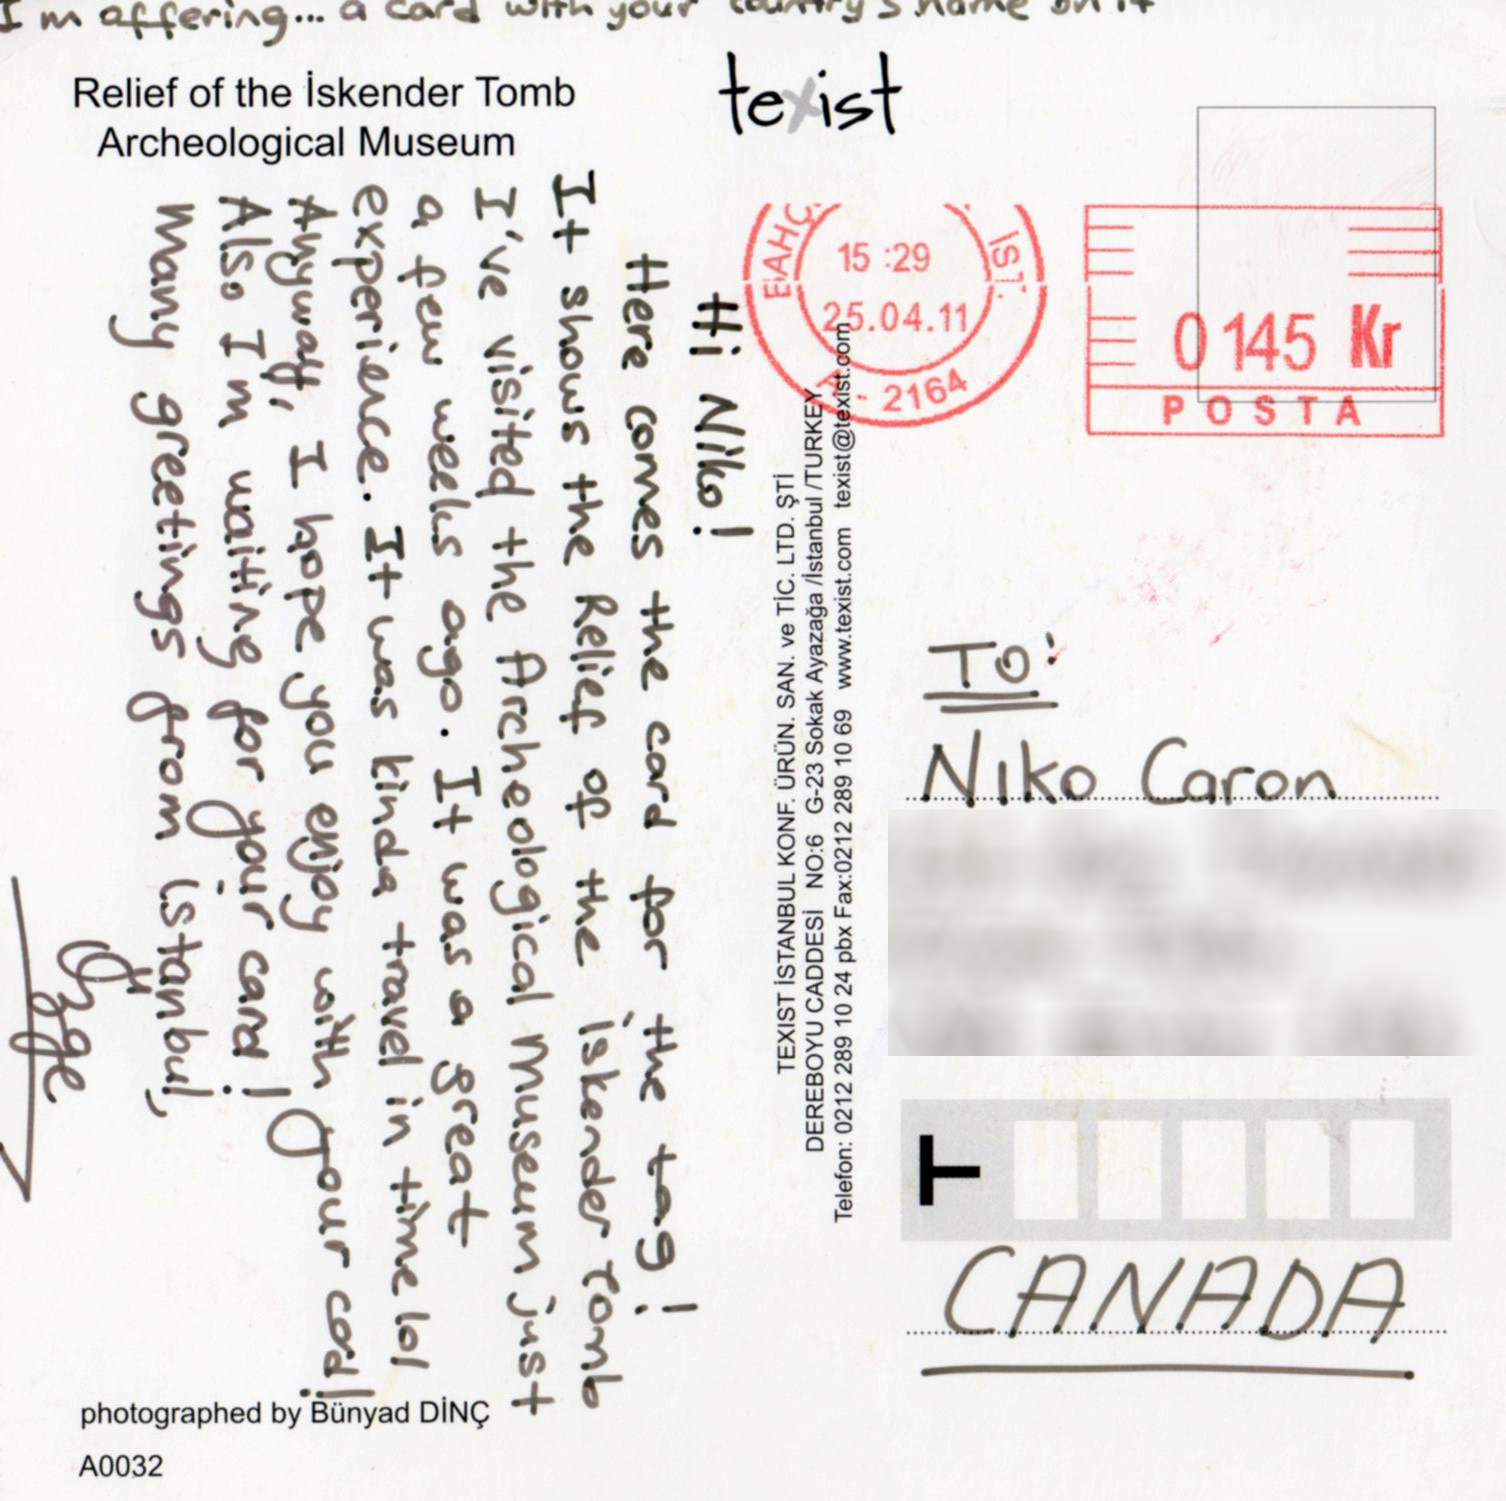 I'm offering... a card with your country's name on it
Relief of the İskender Tomb
Archeological Museum
texist
BAHÇ
İST.
15:29
25.04.11
A - 2164
0145 Kr
POSTA
Hi Niko!
Here comes the card for the tag!
It shows the Relief of the İskender Tomb
I've visited the Archeological Museum just
a few weeks ago. It was a great
experience. It was kinda travel in time lol
Anyway, I hope you enjoy with your card!
Also I'm waiting for your card!
Many greetings from istanbul,
Özge
TEXIST İSTANBUL KONF. ÜRÜN. SAN. ve TİC. LTD. ŞTİ
DEREBOYU CADDESİ NO:6 G-23 Sokak Ayazağa /İstanbul /TURKEY
Telefon: 0212 289 10 24 pbx Fax:0212 289 10 69 www.texist.com texist@texist.com
To:
Niko Caron
T
CANADA
photographed by Bünyad DİNÇ
A0032